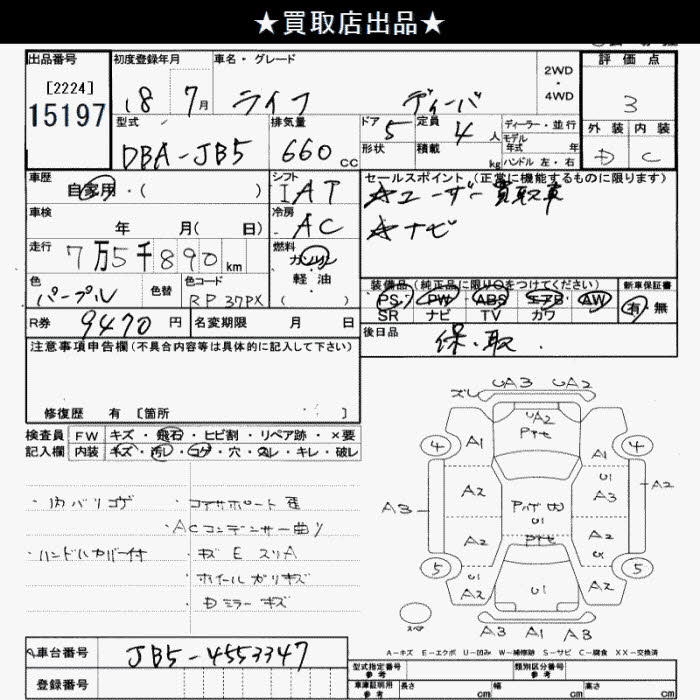 ★買取店出品★
出品番号 初度登録年月 車名・グレード 2WD・4WD 評価点
[2224]
15197 18 7月 ライフ ディーバ 3
型式 排気量 ドア 5 定員 4人 ディーラー・並行 外装 内装
DBA-JB5 660cc 形状 積載 kg モデル年式 年 ハンドル 左・右 D C
車歴 シフト セールスポイント (正常に機能するものに限ります)
自家用・( ) IAT ☆ユーザー買取車
車検 年 月( 日) 冷房 AC ☆ナビ
走行 7万5千890km 燃料 ガソリン
軽油
( )
色 パープル 色替 色コード RP37PX
装備品 (純正品に限り○をつけてください) 新車保証書
PS PW ABS エアB AW 有・無
SR ナビ TV カワ
R券 9470円 名変期限 月 日 後日品 保・取.
注意事項申告欄(不具合内容等は具体的に記入して下さい)
修復歴 有 [箇所 ]
検査員 FW キズ・飛石・ヒビ割・リペア跡・×要
記入欄 内装 キズ・汚レ・コゲ・穴・スレ・キレ・破レ
・内バリコゲ ・コアサポート歪
・ACコンデンサー曲リ
・ハンドルカバー付 ・キズ E スリA
・ホイールガリキズ
・Dミラーキズ
ズレ UA3 UA2
UA2
4 A1 4
A1
U1
A2 A3 A2
A3 U1
A2 A2
5 U1 5
A2 U1 A2
スペア A3 A1 A3
A-キズ E-エクボ U-凹み W-補修跡 S-サビ C-腐食 XX-交換済
車台番号 JB5-4553347
型式指定番号 参考 類別区分番号 参考
登録番号 車庫証明用 参考 長さ cm 幅 cm 高さ cm